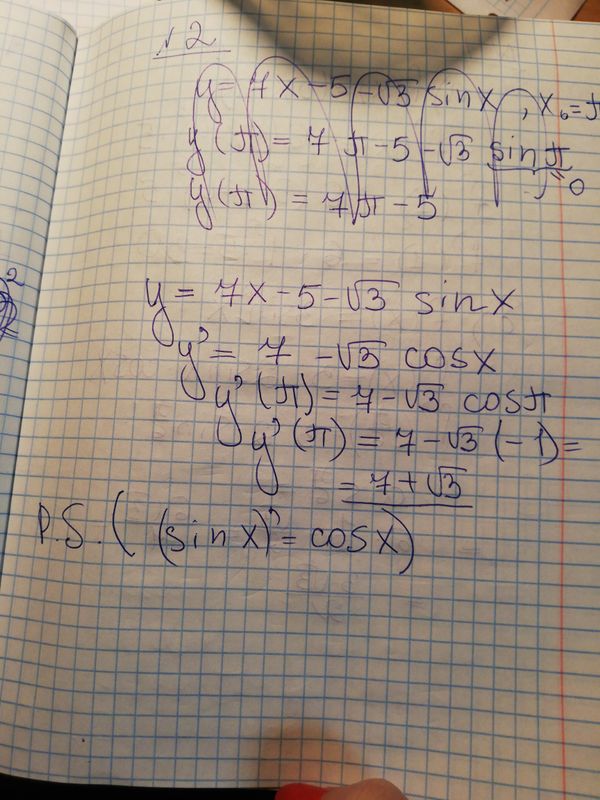 №2
y = 7x - 5 - √3 sin x, x₀ = π
y(π) = 7π - 5 - √3 sin π
= 0
y(π) = 7π - 5
2
y = 7x - 5 - √3 sin x
y' = 7 - √3 cos x
y'(π) = 7 - √3 cos π
y'(π) = 7 - √3 (-1) =
= 7 + √3
P.S. ( (sin x)' = cos x)